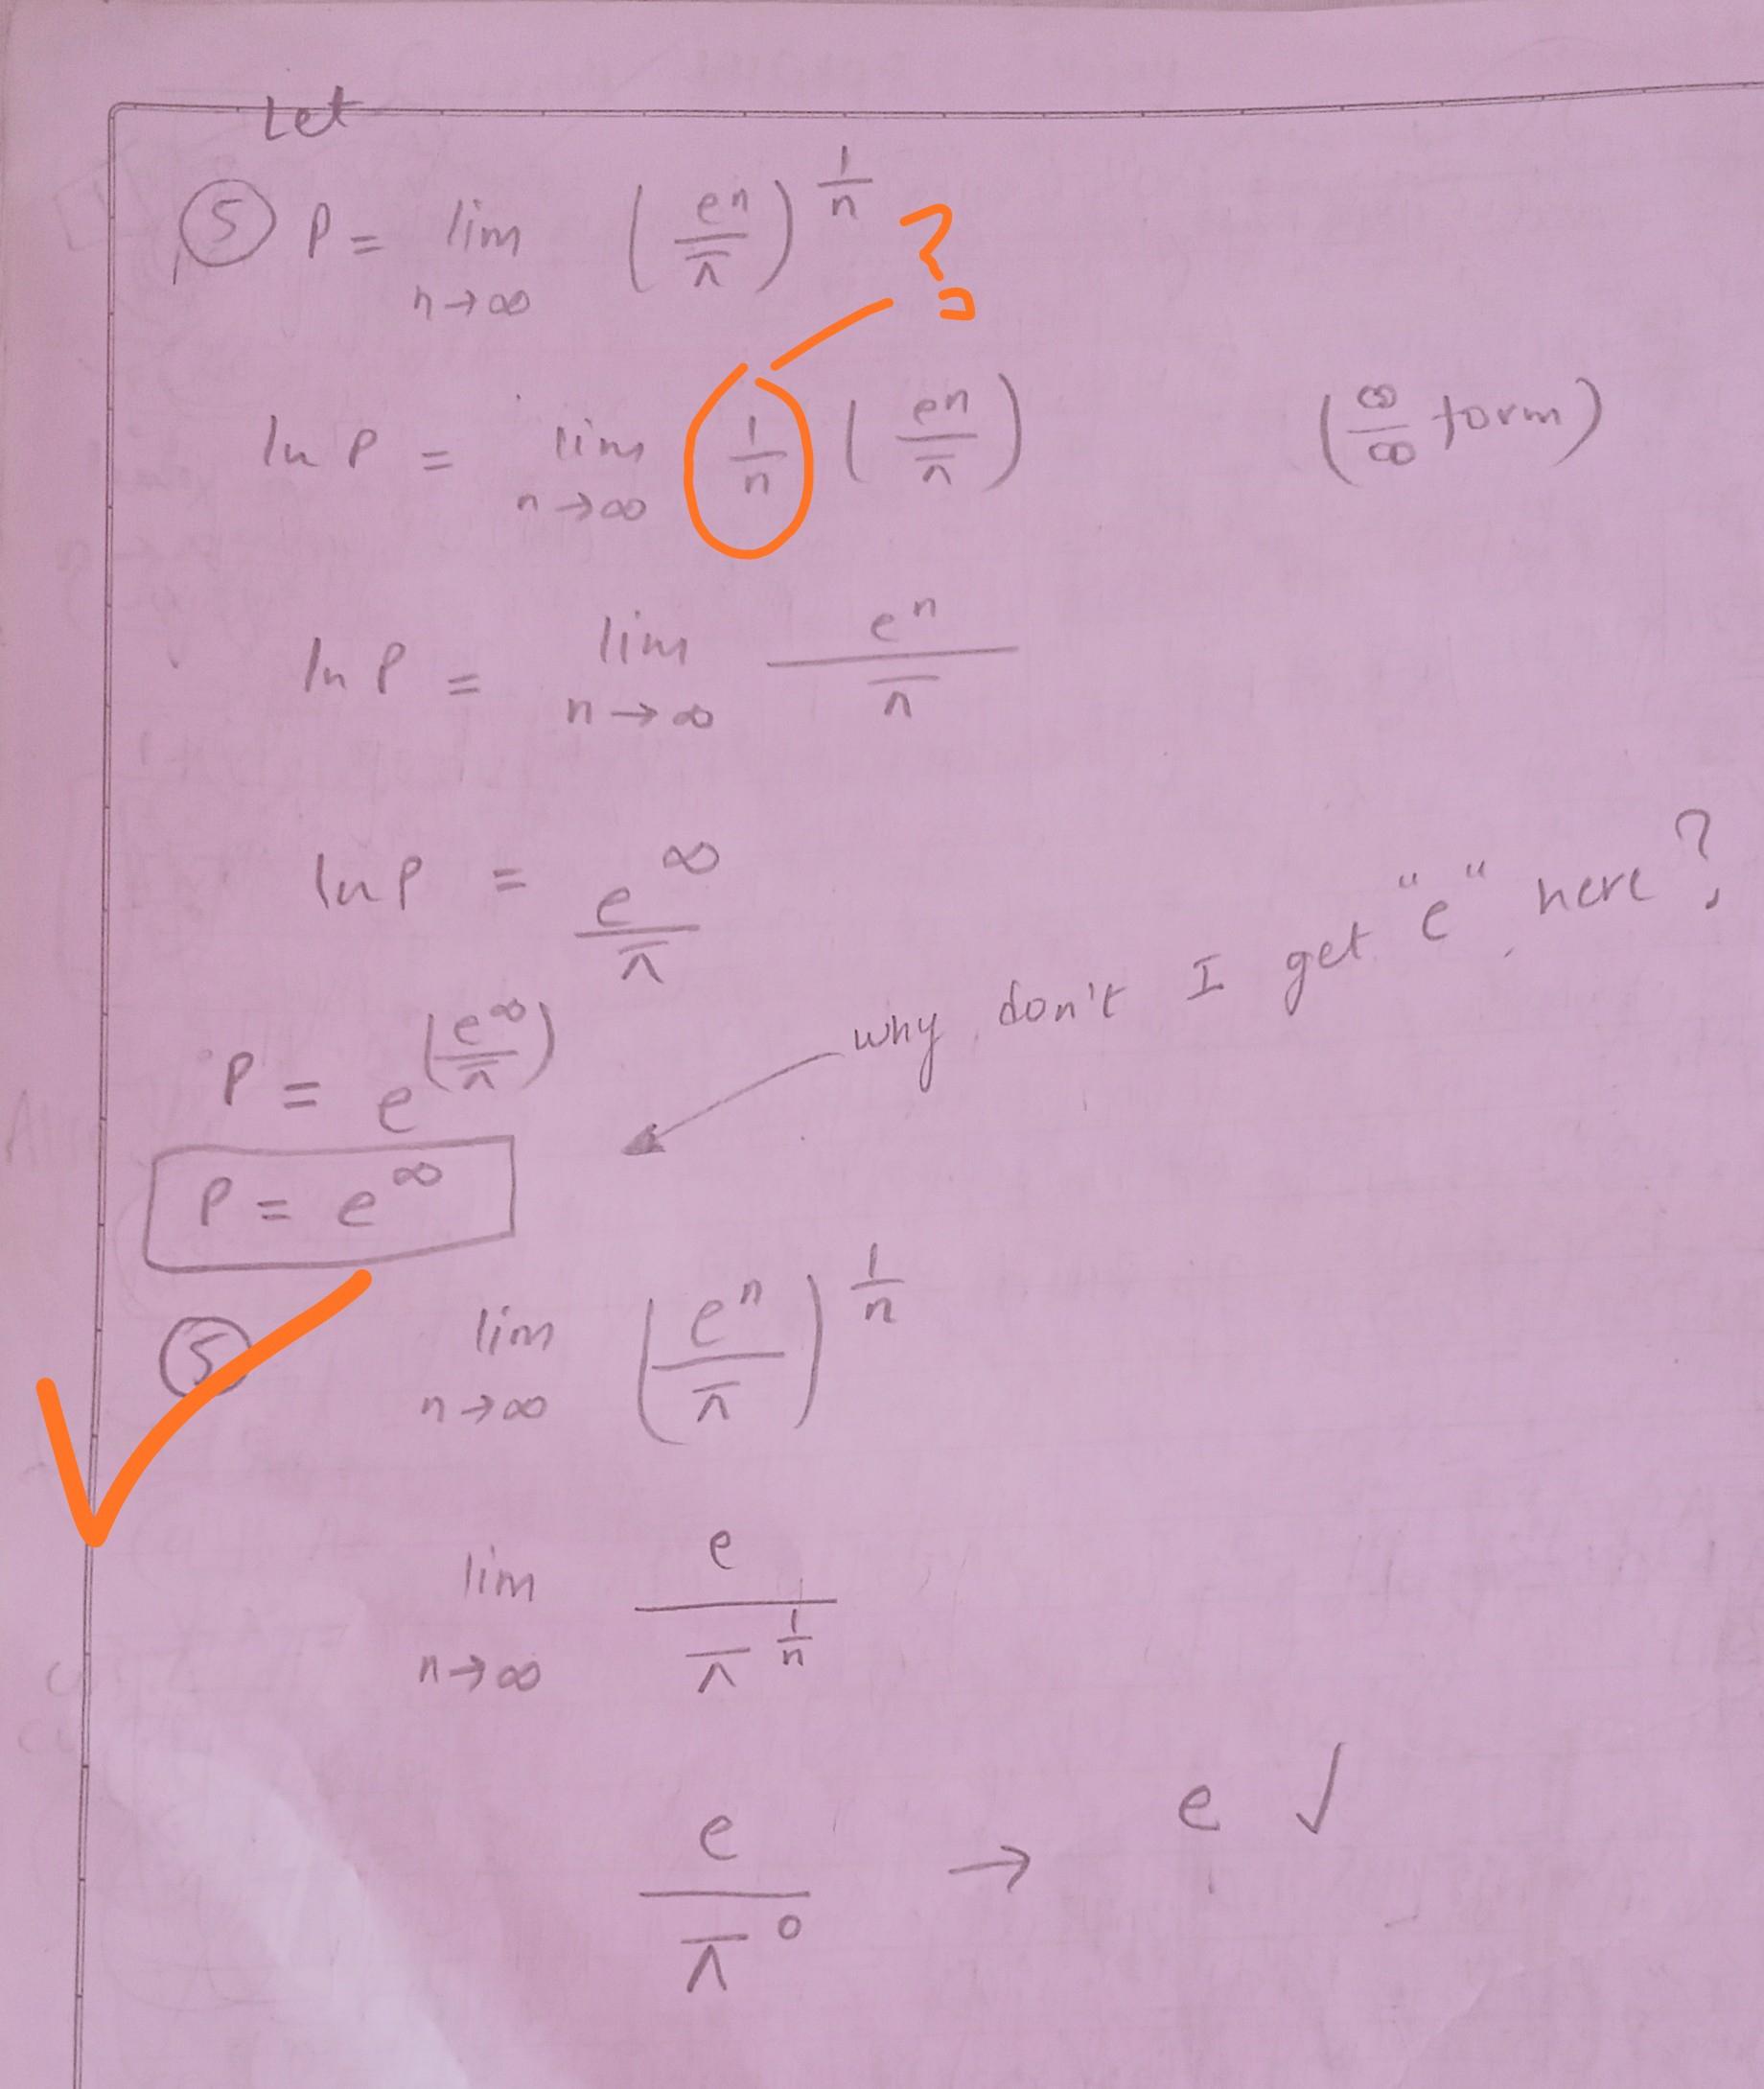 Let
⑤ P = lim n→∞ (eⁿ/π)^(1/n) ?
ln P = lim n→∞ 1/n (eⁿ/π) (∞/∞ form)
ln P = lim n→∞ eⁿ/π
ln P = e^∞/π
why don't I get "e" here?
P = e^(e^∞/π)
P = e^∞
⑤ lim n→∞ (eⁿ/π)^(1/n)
lim n→∞ e/π^(1/n)
e/π^0 → e ✓